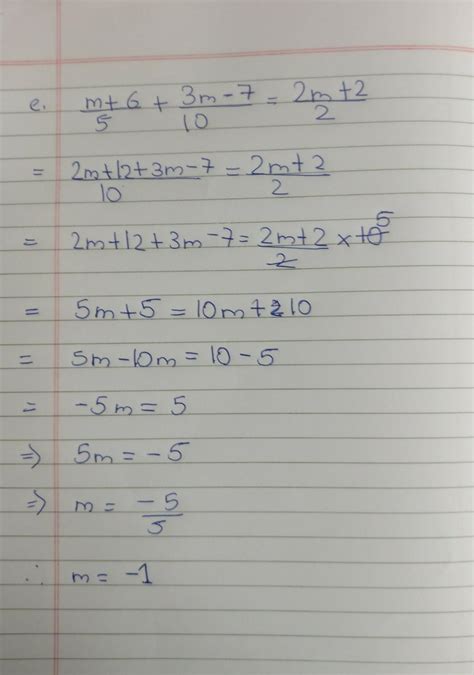 e. m+6/5 + 3m-7/10 = 2m+2/2
= 2m+12+3m-7/10 = 2m+2/2
= 2m+12+3m-7 = 2m+2/2 × 10 5
= 5m+5 = 10m+10
= 5m-10m = 10-5
= -5m = 5
⇒ 5m = -5
⇒ m = -5/5
∴ m = -1